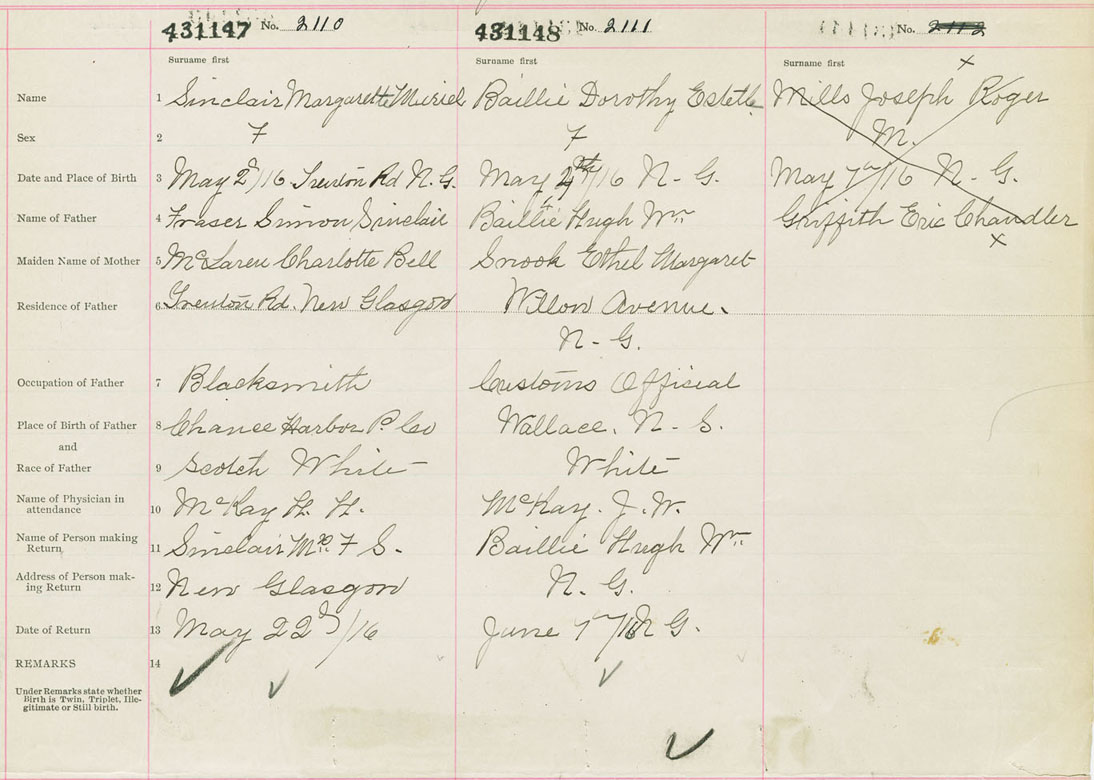 431147 No. 2110 431148 No. 2111 No. 2112
Surname first Surname first Surname first
Name 1 Sinclair Margarette Muriel Baillie Dorothy Estelle Mills Joseph Roger
Sex 2 F F M.
Date and Place of Birth 3 May 2d/16 Trenton Rd N.G. May 4th/16 N-G. May 7th/16 N-G.
Name of Father 4 Fraser Simon Sinclair Baillie Hugh Wm Griffith Eric Chandler
Maiden Name of Mother 5 McLaren Charlotte Bell Snook Ethel Margaret
Residence of Father 6 Trenton Rd. New Glasgow Willow Avenue.
N-G.
Occupation of Father 7 Blacksmith Customs Official
Place of Birth of Father 8 Chance Harbor P. Co Wallace. N-S.
and
Race of Father 9 Scotch White White
Name of Physician in
attendance 10 McKay H. H. McKay. J. W.
Name of Person making
Return 11 Sinclair Mrs F S. Baillie Hugh Wm
Address of Person mak-
ing Return 12 New Glasgow N. G.
Date of Return 13 May 22d/16 June 1st/16 N G.
REMARKS 14
Under Remarks state whether
Birth is Twin, Triplet, Ille-
gitimate or Still birth.